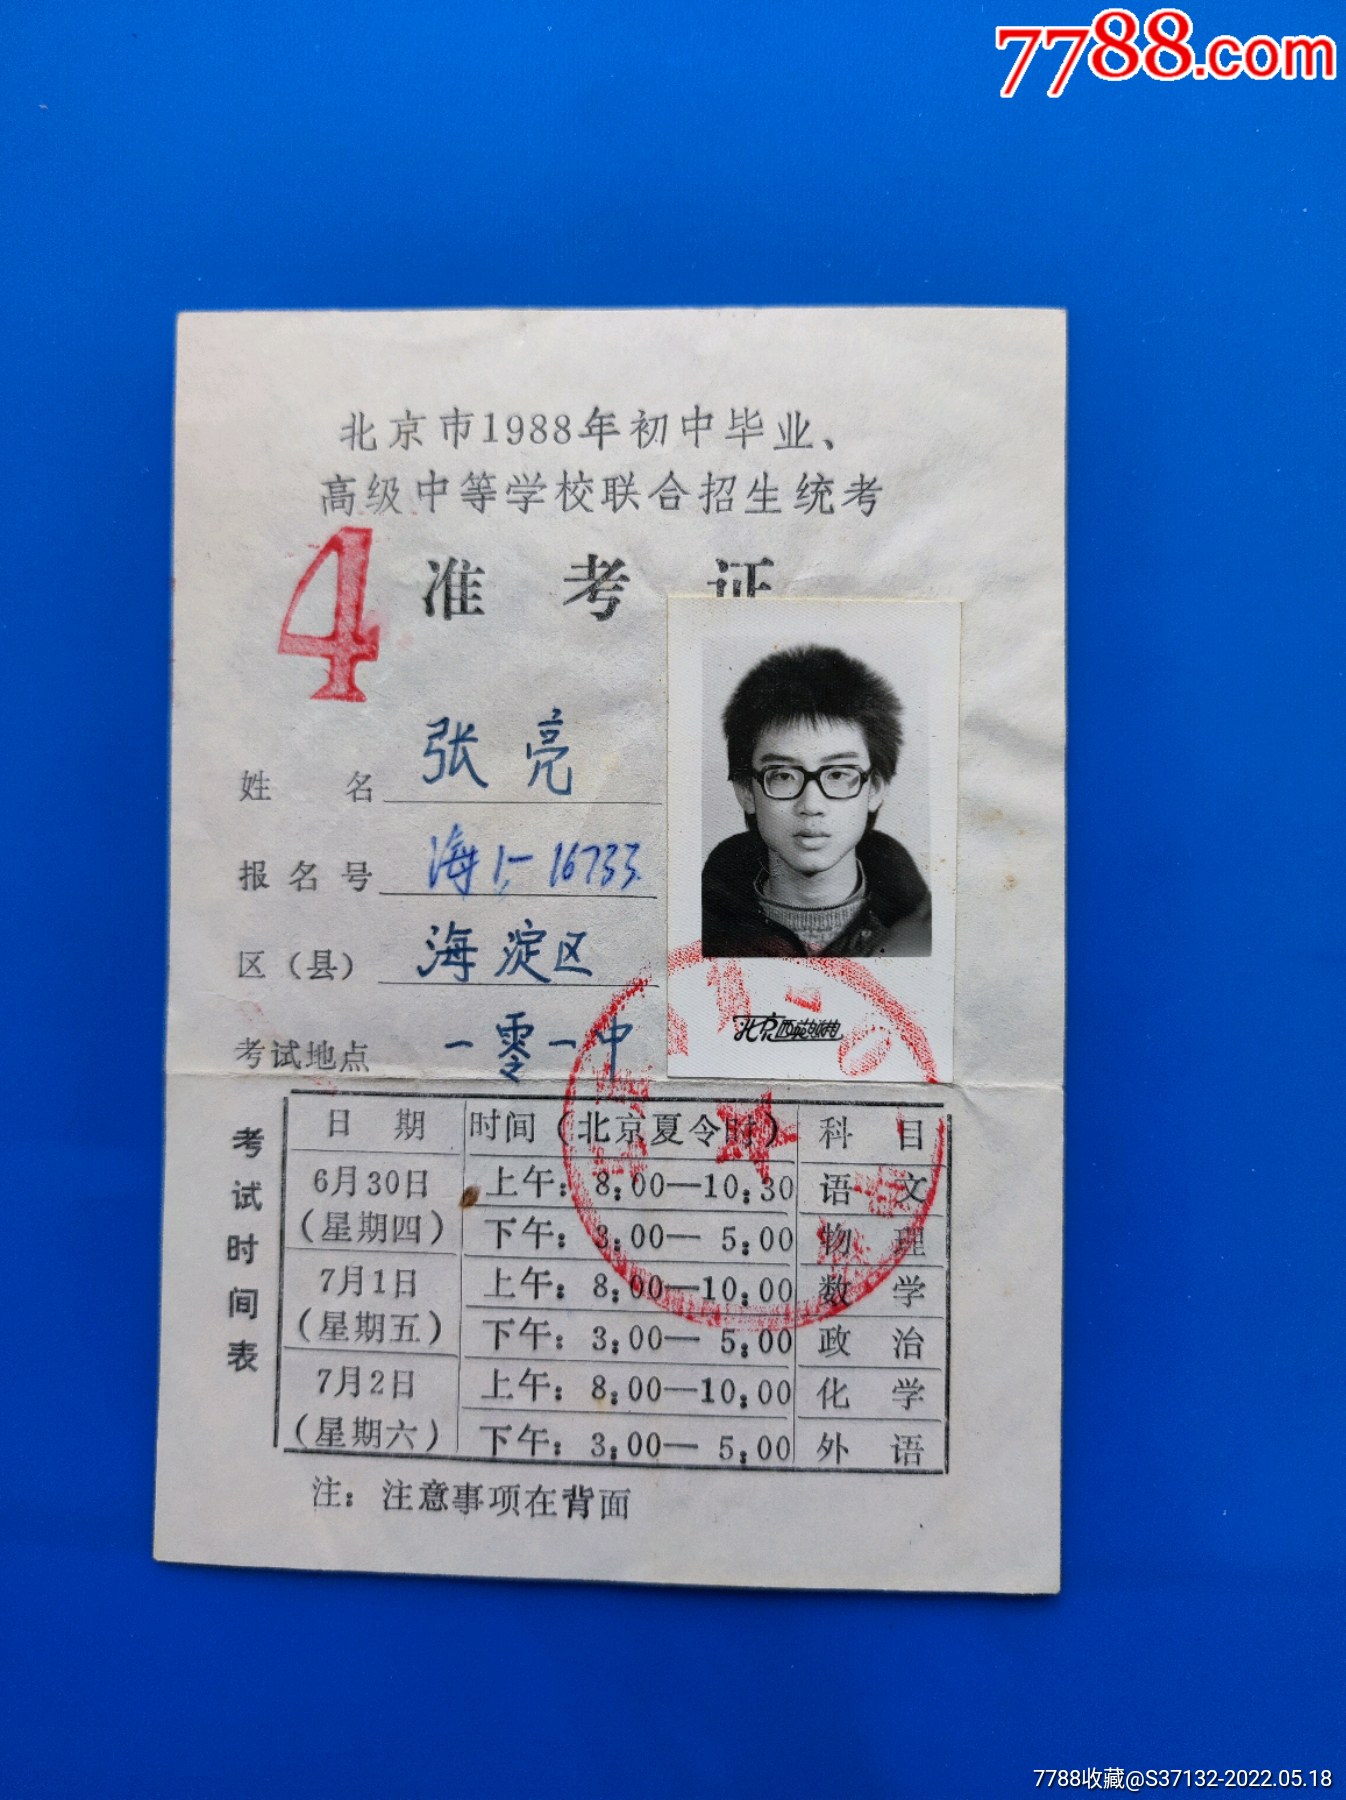 7788.com
北京市1988年初中毕业、
高级中等学校联合招生统考
4
准 考 证
姓 名 张亮
报名号 海 16733
区（县） 海淀区
考试地点 一零一中
北京
考试时间表
日 期 时间（北京夏令时） 科 目
6月30日 上午：8:00—10:30 语 文
（星期四） 下午：3:00—5:00 物 理
7月1日 上午：8:00—10:00 数 学
（星期五） 下午：3:00—5:00 政 治
7月2日 上午：8:00—10:00 化 学
（星期六） 下午：3:00—5:00 外 语
注：注意事项在背面
7788收藏@S37132-2022.05.18